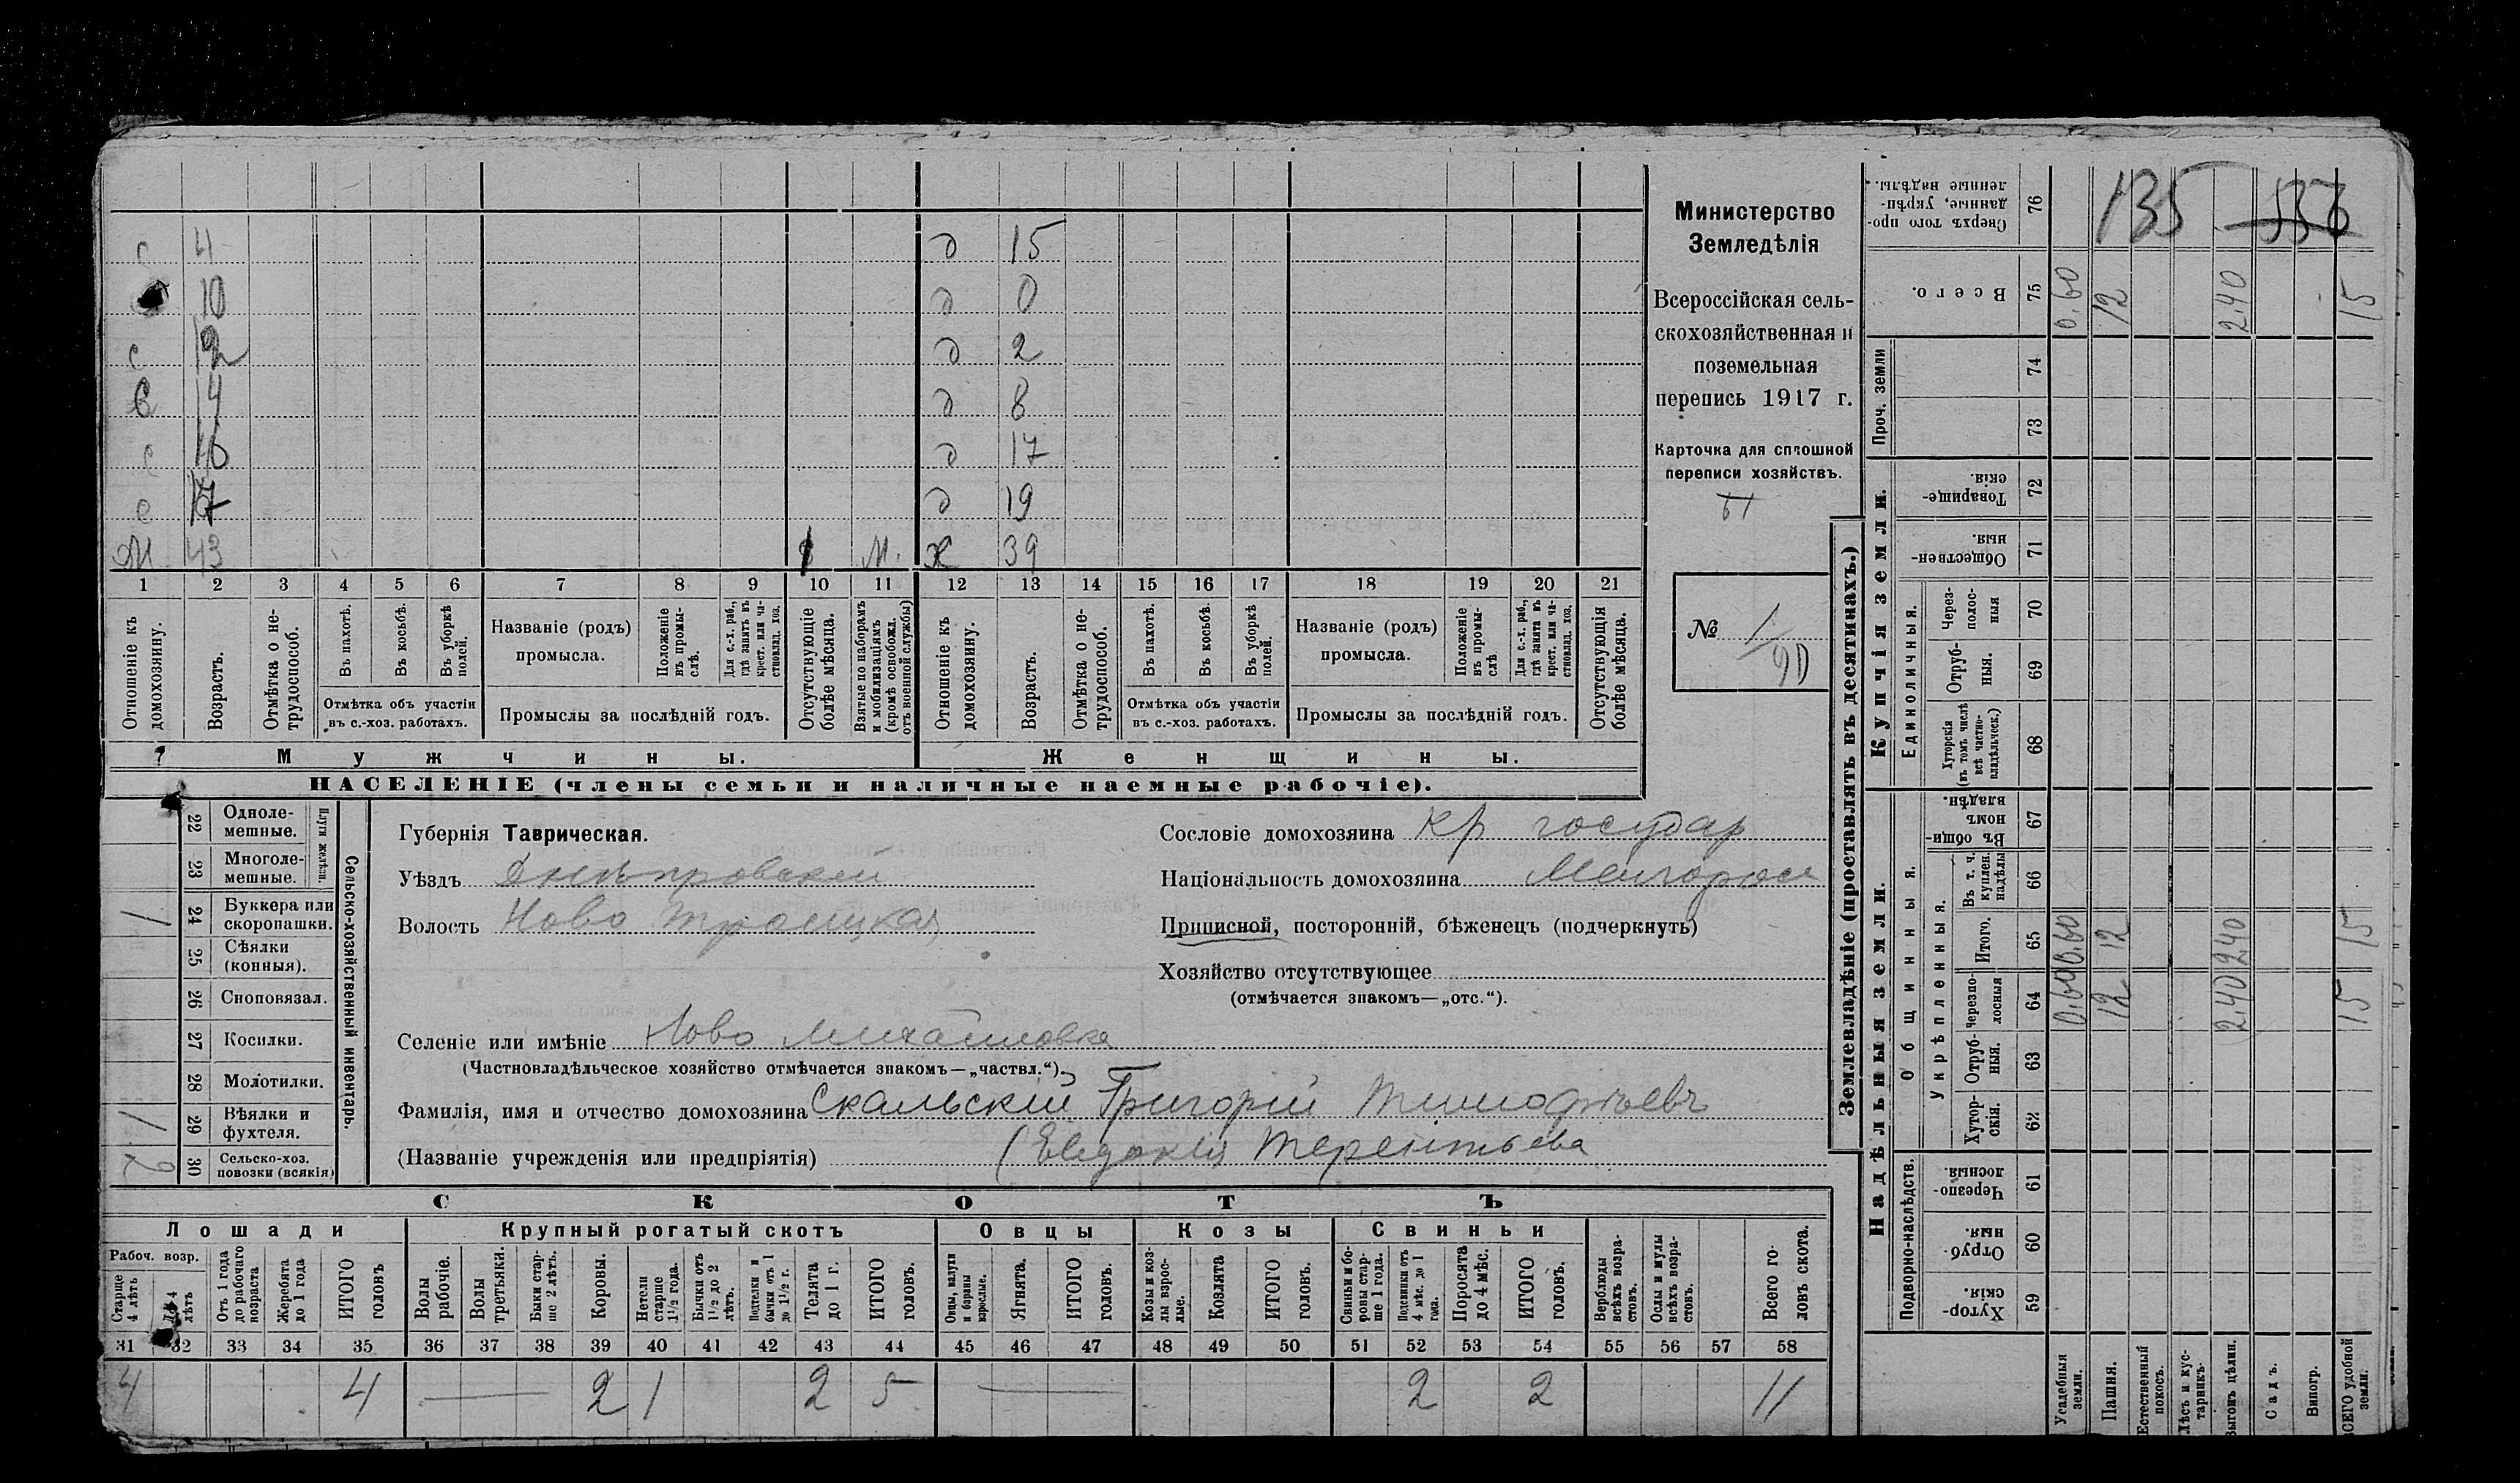 с 4 д 15
10 д 0
с 12 д 2
с 14 д 8
с д 17
с 17 д 19
М 43 М. ж 39
1 2 3 4 5 6 7 8 9 10 11 12 13 14 15 16 17 18 19 20 21
Отношеніе къ домохозяину.
Возрастъ.
Отмѣтка о не-трудоспособ.
Въ пахотѣ.
Въ косьбѣ.
Въ уборкѣ полей.
Отмѣтка объ участіи
въ с.-хоз. работахъ.
Названіе (родъ)
промысла.
Положеніе въ промы-слѣ.
Для с.-х. раб., гдѣ занятъ въ крест. или ча-стновлад. хоз.
Промыслы за послѣдній годъ.
Отсутствующіе болѣе мѣсяца.
Взятые по наборамъ и мобилизаціямъ (кромѣ освобожд. отъ военной службы)
Отношеніе къ домохозяину.
Возрастъ.
Отмѣтка о не-трудоспособ.
Въ пахотѣ.
Въ косьбѣ.
Въ уборкѣ полей.
Отмѣтка объ участіи
въ с.-хоз. работахъ.
Названіе (родъ)
промысла.
Положеніе въ промы-слѣ.
Для с.-х. раб., гдѣ занята въ крест. или ча-стновлад. хоз.
Промыслы за послѣдній годъ.
Отсутствующія болѣе мѣсяца.
Мужчины.
Женщины.
НАСЕЛЕНІЕ (члены семьи и наличные наемные рабочіе).
Министерство
Земледѣлія
Всероссійская сель-
скохозяйственная и
поземельная
перепись 1917 г.
Карточка для сплошной
переписи хозяйствъ.
№ 1/90
Сельско-хозяйственный инвентарь.
Плуги желѣзн.
22 Одноле-
мешные.
23 Многоле-
мешные.
1 24 Буккера или
скоропашки.
25 Сѣялки
(конныя).
26 Сноповязал.
27 Косилки.
28 Молотилки.
1 29 Вѣялки и
фухтеля.
2 30 Сельско-хоз.
повозки (всякія)
Губернія Таврическая.
Уѣздъ Днѣпровскій
Волость Ново Троицкая
Сословіе домохозяина кр государ
Національность домохозяина Малоросс
Приписной, посторонній, бѣженецъ (подчеркнуть)
Хозяйство отсутствующее
(отмѣчается знакомъ—„отс.“).
Селеніе или имѣніе Ново Михайловка
(Частновладѣльческое хозяйство отмѣчается знакомъ—„частвл.“).
Фамилія, имя и отчество домохозяина Скальскій Григорій Тимофѣевъ
(Названіе учрежденія или предпріятія) (Евдокія Терентьева
СКОТЪ
Лошади Крупный рогатый скотъ Овцы Козы Свиньи
Рабоч. возр.
Старше 4 лѣтъ
До 4 лѣтъ
Отъ 1 года до рабочаго возраста
Жеребята до 1 года
ИТОГО головъ
Волы рабочіе.
Волы третьяки.
Быки стар-ше 2 лѣтъ.
Коровы.
Нетели старше 1½ года.
Бычки отъ 1½ до 2 лѣтъ.
Подтелки и бычки отъ 1 до 1½ г.
Телята до 1 г.
ИТОГО головъ.
Овцы, валухи и бараны взрослые.
Ягнята.
ИТОГО головъ.
Козы и коз-лы взрос-лые.
Козлята
ИТОГО головъ.
Свиньи и бо-ровы стар-ше 1 года.
Подсвинки отъ 4 мѣс. до 1 года.
Поросята до 4 мѣс.
ИТОГО головъ.
Верблюды всѣхъ возра-стовъ.
Ослы и мулы всѣхъ возра-стовъ.
Всего го-ловъ скота.
31 32 33 34 35 36 37 38 39 40 41 42 43 44 45 46 47 48 49 50 51 52 53 54 55 56 57 58
4 4 — 2 1 2 5 — 2 2 11
Землевладѣніе (проставлять въ десятинахъ.)
Купчія земли.
Надѣльныя земли.
Сверхъ того про-данные, укрѣп-ленные надѣлы. 76 135 536
Всего. 75 0,60 12 2,40 15
Проч. земли 74
73
Товарище-скія. 72
Обществен-ныя. 71
Единоличныя.
Через-полос-ныя 70
Отруб-ныя. 69
Хуторскія (въ томъ числѣ всѣ частно-владѣльческ.) 68
Общинныя.
Въ общи-номъ владѣн. 67
Укрѣпленныя.
Въ т. ч. куплен. надѣлы 66
Итого. 65 0,60 12 2,40 15
Черезпо-лосныя 64 0,60 12 2,40 15
Отруб-ныя. 63
Хутор-скія. 62
Подворно-наслѣдств.
Черезпо-лосныя. 61
Отруб-ныя. 60
Хутор-скія. 59
Усадебныя земли.
Пашня.
Естественный покосъ.
Лѣсъ и кус-тарникъ.
Выгонъ цѣлин.
Садъ.
Виногр.
ВСЕГО удобной земли.